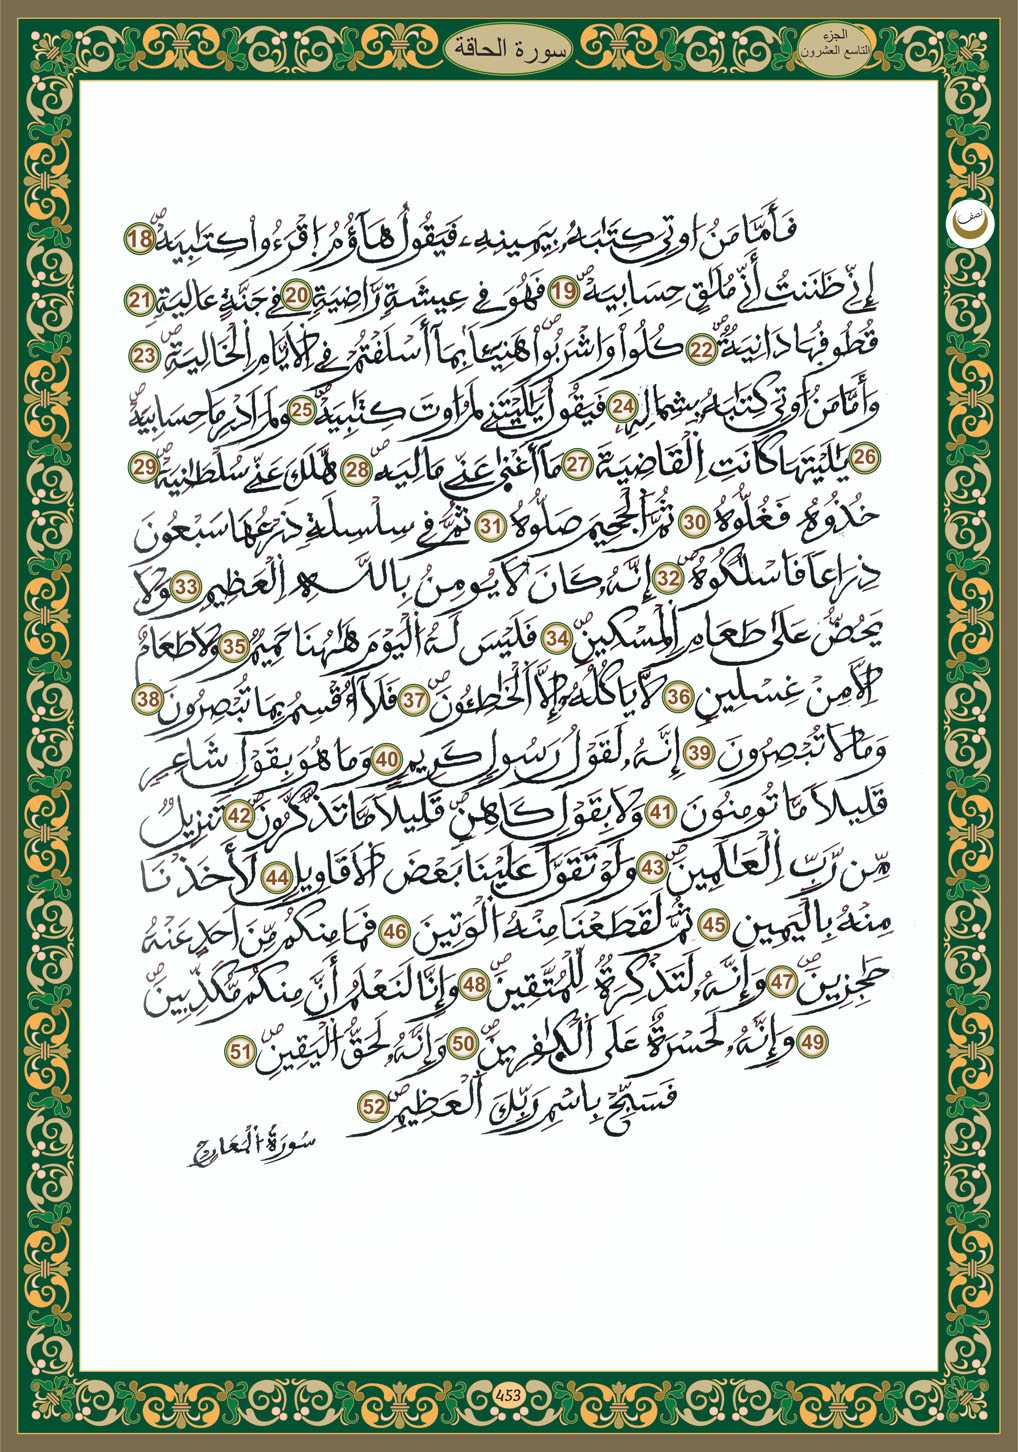 سورة الحاقة
الجزء
التاسع العشرون
نصف
فَأَمَّا مَنُ اوتِيَ كِتَٰبَهُۥ بِيَمِينِهِۦ فَيَقُولُ هَآؤُمُ اِقْرَءُواْ كِتَٰبِيَهْ ص 18
إِنِّي ظَنَنتُ أَنِّي مُلَٰقٍ حِسَابِيَهْ ص 19 فَهُوَ فِي عِيشَةٍ رَّاضِيَةٍ 20 فِي جَنَّةٍ عَالِيَةٍ 21
قُطُوفُهَا دَانِيَةٌ ص 22 كُلُواْ وَاشْرَبُواْ هَنِيٓـَٔاۢ بِمَآ أَسْلَفْتُمْ فِي اِلَايَّامِ اِلْخَالِيَةِ ص 23
وَأَمَّا مَنُ اوتِيَ كِتَٰبَهُۥ بِشِمَالِهِۦ 24 فَيَقُولُ يَٰلَيْتَنِي لَمُ اوتَ كِتَٰبِيَهْ ص 25 وَلَمَ اَدْرِ مَا حِسَابِيَهْ ص
26 يَٰلَيْتَهَا كَانَتِ اِلْقَاضِيَةَ 27 مَآ أَغْنَىٰ عَنِّي مَالِيَهْ ص 28 هَّلَكَ عَنِّي سُلْطَٰنِيَهْ ص 29
خُذُوهُ فَغُلُّوهُ 30 ثُمَّ اَلْجَحِيمَ صَلُّوهُ 31 ثُمَّ فِي سِلْسِلَةٍ ذَرْعُهَا سَبْعُونَ
ذِرَاعاً فَاسْلُكُوهُ ص 32 إِنَّهُۥ كَانَ لَا يُومِنُ بِاللَّهِ اِلْعَظِيمِ 33 وَلَا
يَحُضُّ عَلَىٰ طَعَامِ اِلْمِسْكِينِ ص 34 فَلَيْسَ لَهُ اُلْيَوْمَ هَٰهُنَا حَمِيمٌ 35 وَلَا طَعَامٌ
اِلَّا مِنْ غِسْلِينٍ 36 لَّا يَاكُلُهُۥٓ إِلَّا اَلْخَٰطِـُٔونَ ص 37 فَلَآ أُقْسِمُ بِمَا تُبْصِرُونَ 38
وَمَا لَا تُبْصِرُونَ 39 إِنَّهُۥ لَقَوْلُ رَسُولٍ كَرِيمٍ 40 وَمَا هُوَ بِقَوْلِ شَاعِرٍ
قَلِيلاً مَّا تُومِنُونَ 41 وَلَا بِقَوْلِ كَاهِنٍ ص قَلِيلاً مَّا تَذَّكَّرُونَ ص 42 تَنزِيلٌ
مِّن رَّبِّ اِلْعَٰلَمِينَ ص 43 وَلَوْ تَقَوَّلَ عَلَيْنَا بَعْضَ اَلَاقَاوِيلِ 44 لَأَخَذْنَا
مِنْهُ بِالْيَمِينِ 45 ثُمَّ لَقَطَعْنَا مِنْهُ اُلْوَتِينَ 46 فَمَا مِنكُم مِّنَ اَحَدٍ عَنْهُ
حَٰجِزِينَ ص 47 وَإِنَّهُۥ لَتَذْكِرَةٌ لِّلْمُتَّقِينَ ص 48 وَإِنَّا لَنَعْلَمُ أَنَّ مِنكُم مُّكَذِّبِينَ ص
49 وَإِنَّهُۥ لَحَسْرَةٌ عَلَى اَلْكَٰفِرِينَ ص 50 وَإِنَّهُۥ لَحَقُّ اُلْيَقِينِ ص 51
فَسَبِّحْ بِاسْمِ رَبِّكَ اَلْعَظِيمِ ص 52
سُورَةُ اُلْمَعَارِجِ
453